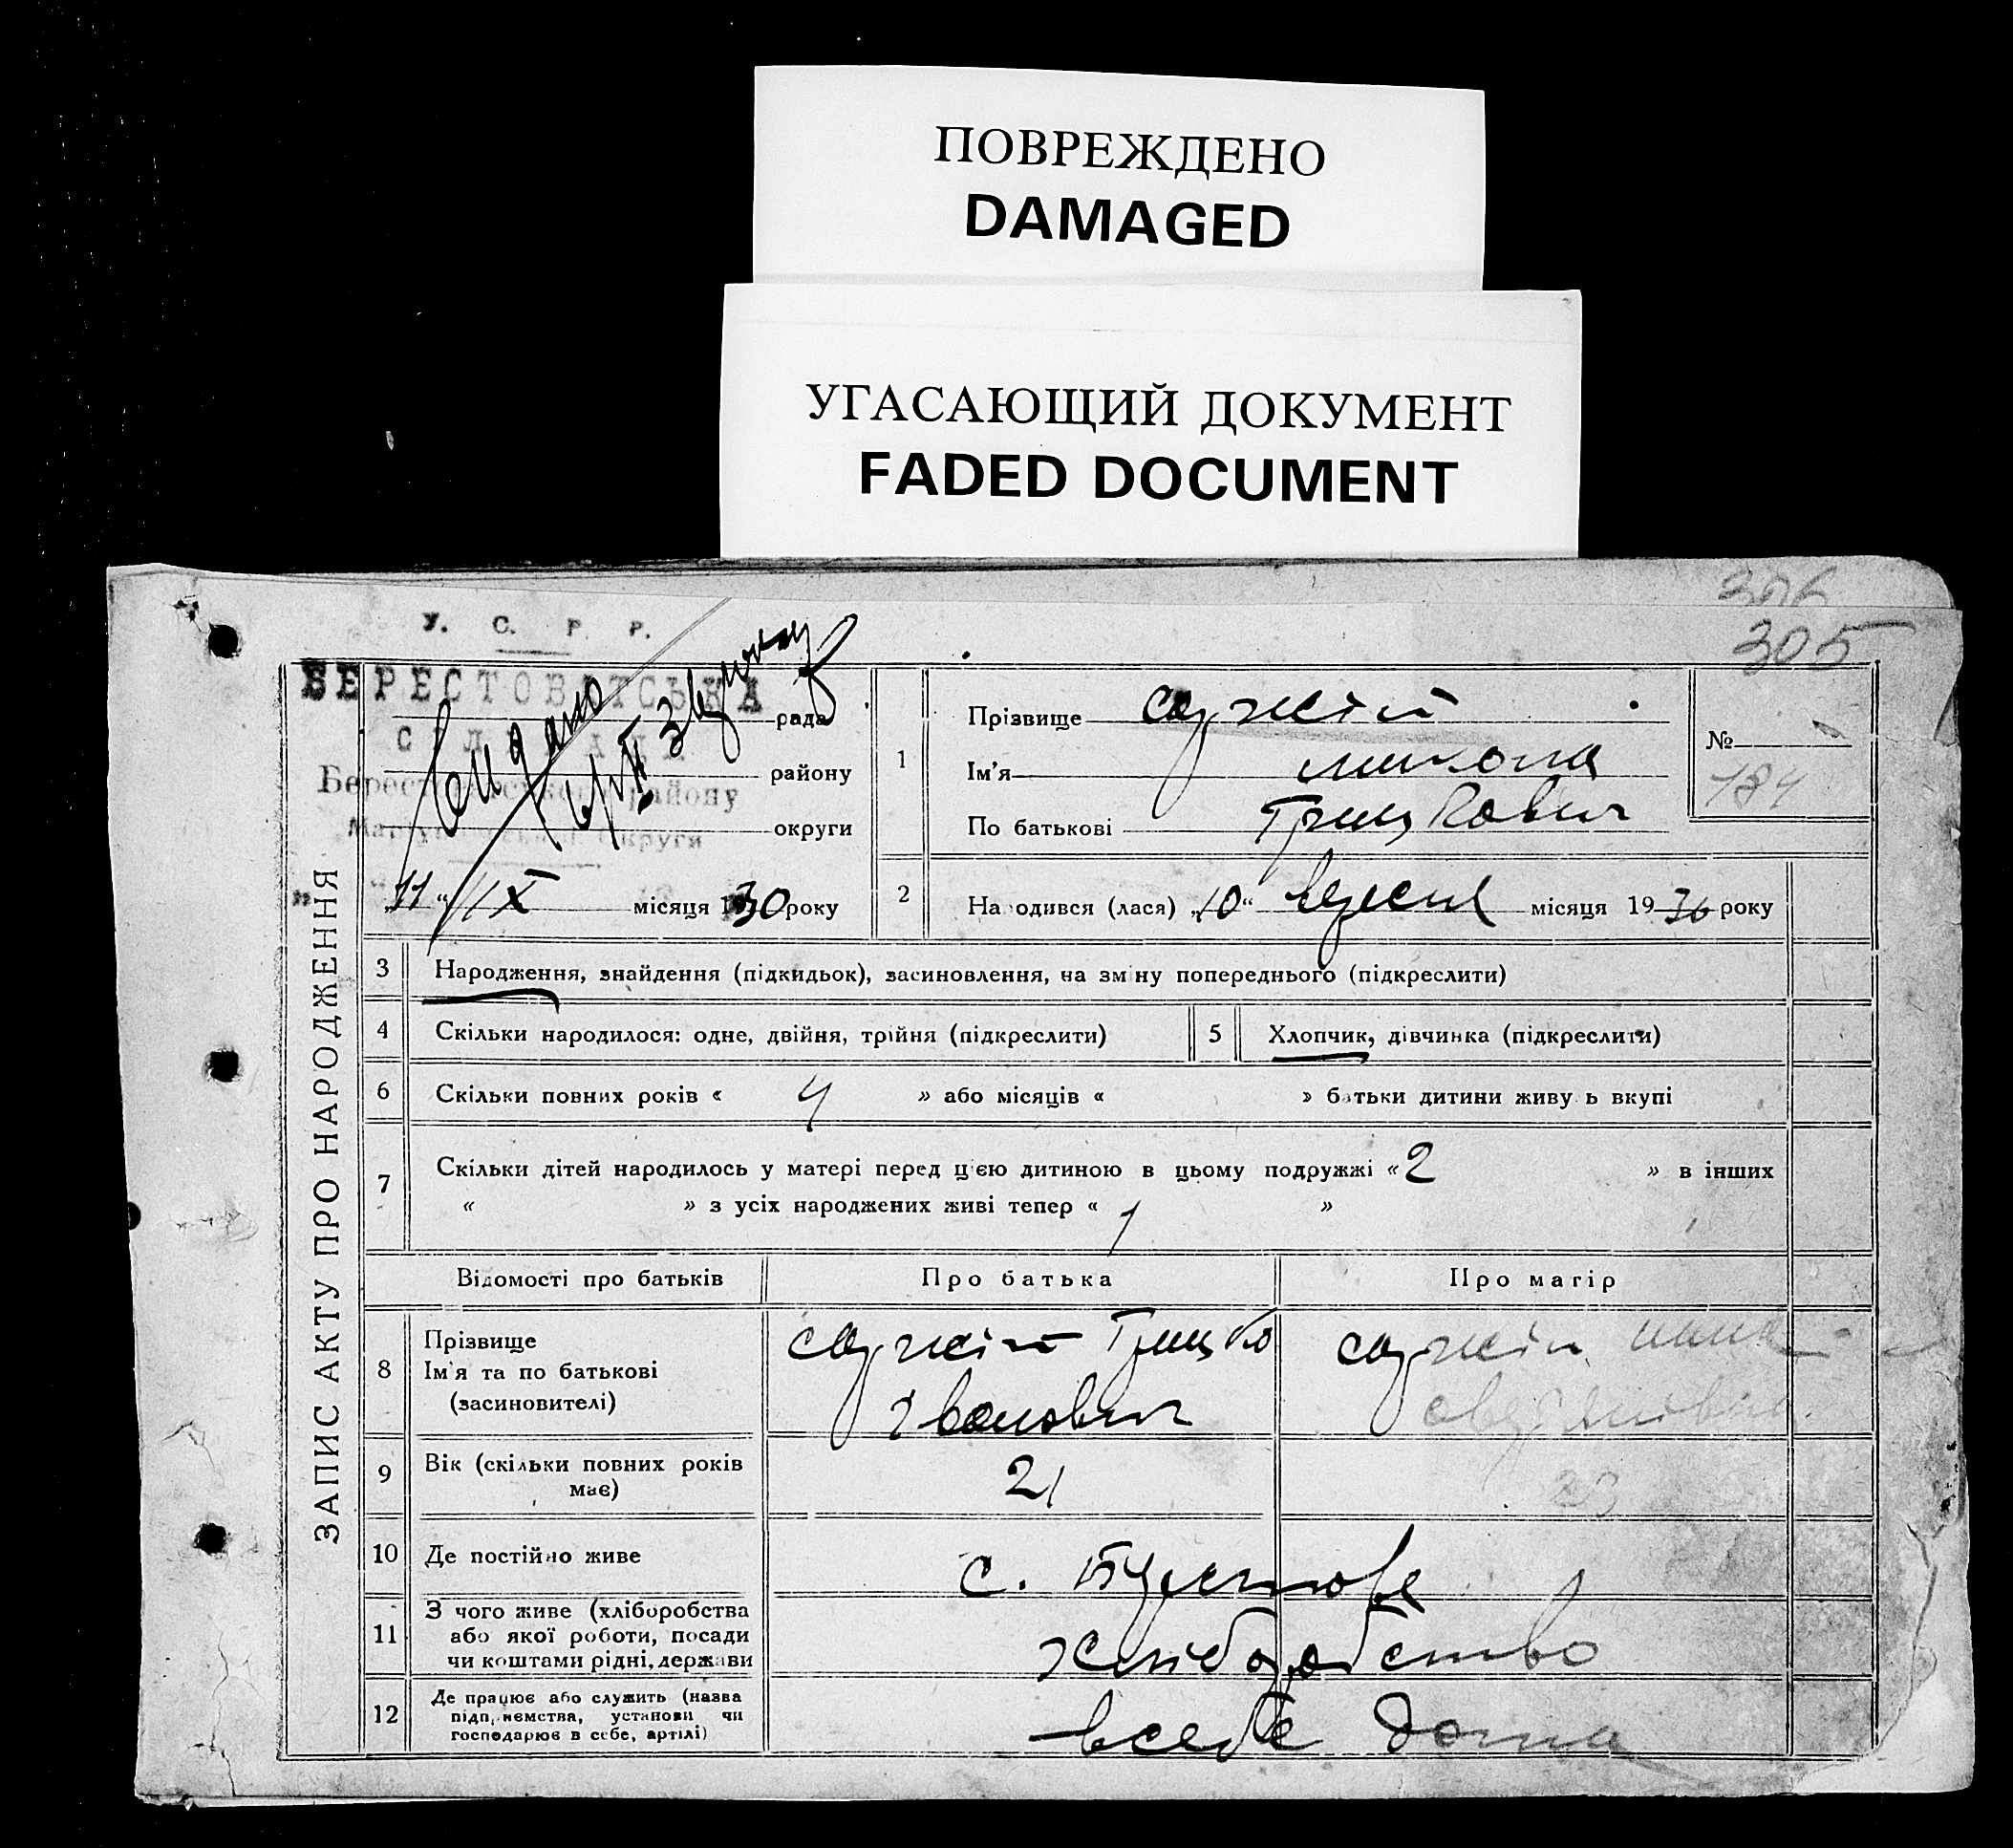 ПОВРЕЖДЕНО
DAMAGED
УГАСАЮЩИЙ ДОКУМЕНТ
FADED DOCUMENT
306
305
У. С. Р. Р.
БЕРЕСТОВАТСЬКА
рада
району
Берестоватського району
округи
округи
"11" IX місяця 1930 року
ЗАПИС АКТУ ПРО НАРОДЖЕННЯ
1
Прізвище
Ім'я микола
По батькові Грицкович
№
184
2 Народився (лася) "10" вересня місяця 1930 року
3 Народження, знайдення (підкидьок), засиновлення, на зміну попереднього (підкреслити)
4 Скільки народилося: одне, двійня, трійня (підкреслити)
5 Хлопчик, дівчинка (підкреслити)
6 Скільки повних років « 4 » або місяців « » батьки дитини живуть вкупі
7 Скільки дітей народилось у матері перед цією дитиною в цьому подружжі « 2 » в інших
« » з усіх народжених живі тепер « 1 »
Відомості про батьків
Про батька
Про матір
8 Прізвище
Ім'я та по батькові
(засиновителі)
Грицко
Іванович
9 Вік (скільки повних років
має)
21
10 Де постійно живе
с.
11 З чого живе (хліборобства
або якої роботи, посади
чи коштами рідні, держави
хліборобство
12 Де працює або служить (назва
підприємства, установи чи
господарює в себе, артілі)
всебе дома